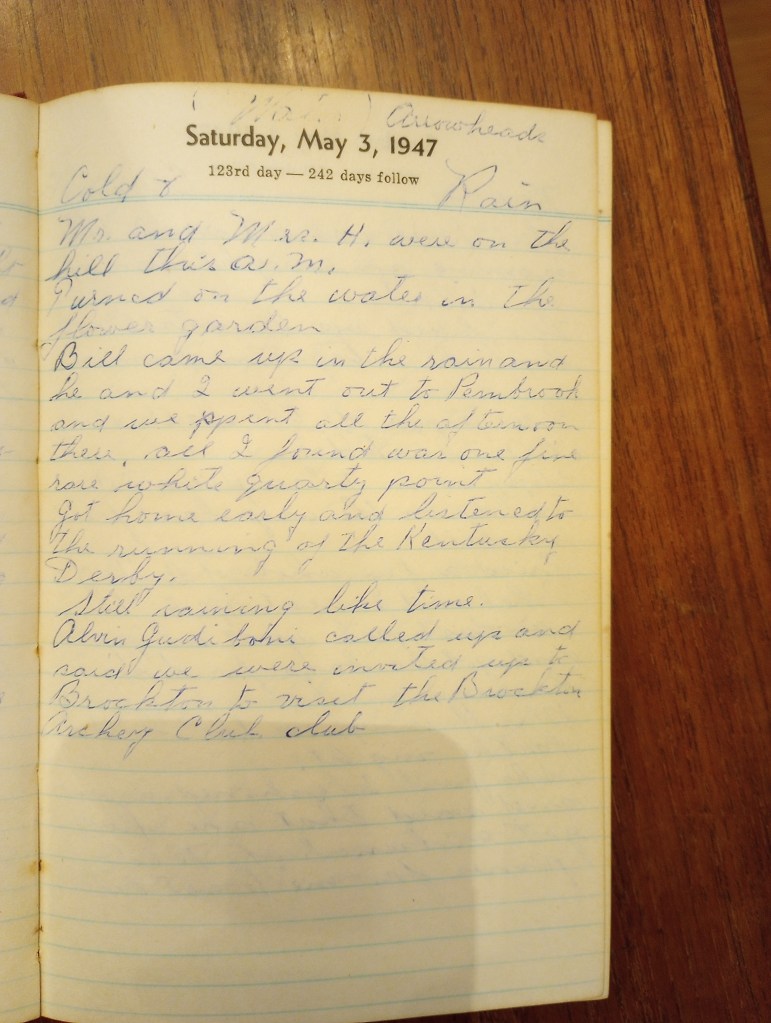 Arrowheads
Saturday, May 3, 1947
123rd day — 242 days follow
Cold & Rain
Mr. and Mrs. H. were on the
hill this a.m.
Turned on the water in the
flower garden
Bill came up in the rain and
he and I went out to Pembrook
and we spent all the afternoon
there, all I found was one fine
rare white quarty point
Got home early and listened to
the running of the Kentucky
Derby.
Still raining like time.
Alvin Gudiboni called up and
said we were invited up to
Brockton to visit the Brockton
Archery Club club